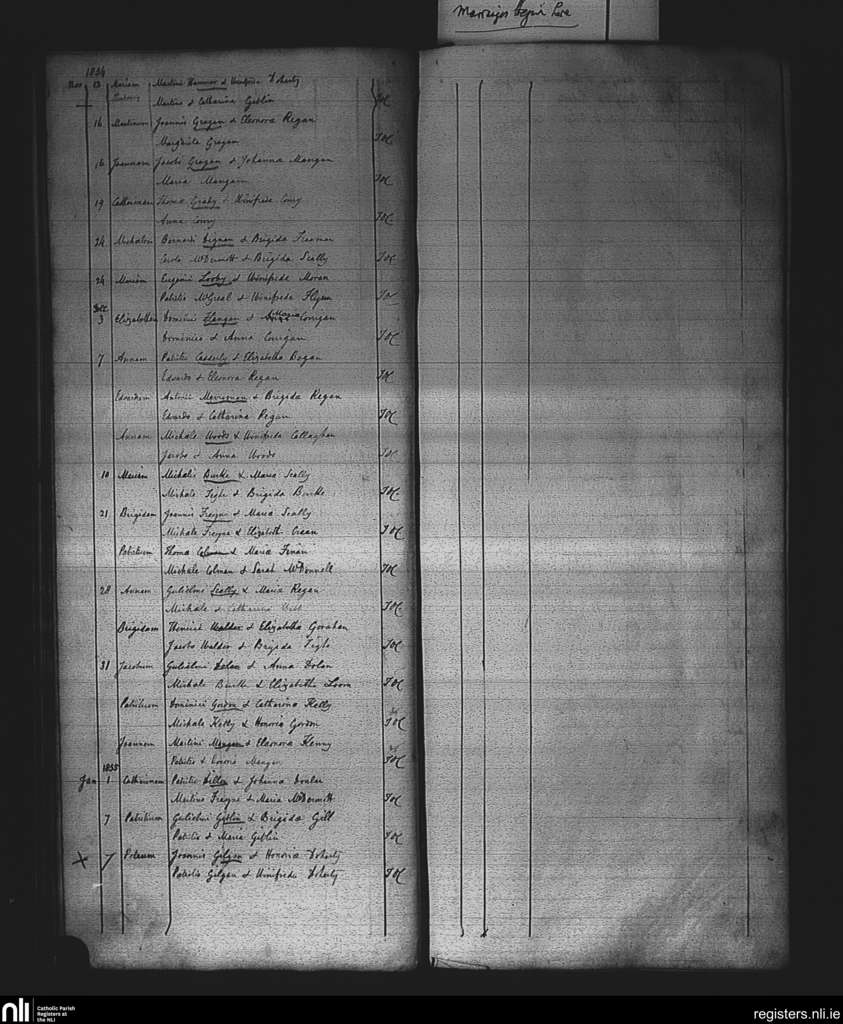 Marriages begin here
1854
Nov 13 Mariam Martini Hannon & Winifrida Doherty
Martino & Catharina Geblin JOC
16 Martinum Joannis Grogan & Eleonora Regan
Margarita Grogan JOC
16 Joannem Jacobi Grogan & Johanna Mangan
Maria Mangan JOC
19 Catherinam Thoma & Winifride Conry
Anna Conry JOC
24 Michaelem Bernardi Dignan & Brigida
McDermott & Brigida Scally JOC
24 Mariam Eugenii & Winifride Moran
Patritio McGreal & Winifreda Flynn JOC
Dec
3 Elizabetham Dominici Flangan & Maria Corrigan
Dominico & Anna Corrigan JOC
7 Annam Patritii Casserly & Elizabetha Bogan
Edvardo & Eleonora Regan JOC
Edvardum Antonii & Brigida Regan
Edvardo & Catharina Regan JOC
Annam Michale Woods & Winifrida Callaghan
Jacobo & Anna Woods JOC
10 Mariam Michalis Burke & Maria Scally
Michale Tighe & Brigida Burke JOC
21 Brigidam Joannis Freyne & Maria Scally
Michale Freyne & Elizabeth JOC
Patritium Thoma Colman & Maria
Michale Colman & Sarah McDonnell JOC
28 Annam Gulielmi Scally & Maria Regan
Michale & Catharina JOC
Brigidam Henrici Waldor & Elizabetha Gorahan
Jacobo Waldor & Brigida Tighe JOC
31 Jacobum Gulielmi Dolan & Anna Dolan
Michale Burke & Elizabetha JOC
Patritium Dominici Gordon & Catharina Kelly
Michale Kelly & Honoria Gordon JOC
Joannem Martini Mangan & Eleonora Kenny
Patritio & Mangan JOC
1855
Jan 1 Catherinam Patritii Dillon & Johanna
Martino Freyne & Maria McDermott JOC
7 Patritium Gulielmi Geblin & Brigida Gill
Patritio & Maria Geblin JOC
7 Petrum Joannis Gilgan & Honoria Doherty
Patritio Gilgan & Winifrida Doherty JOC
nli Catholic Parish
Registers at
the NLI
registers.nli.ie